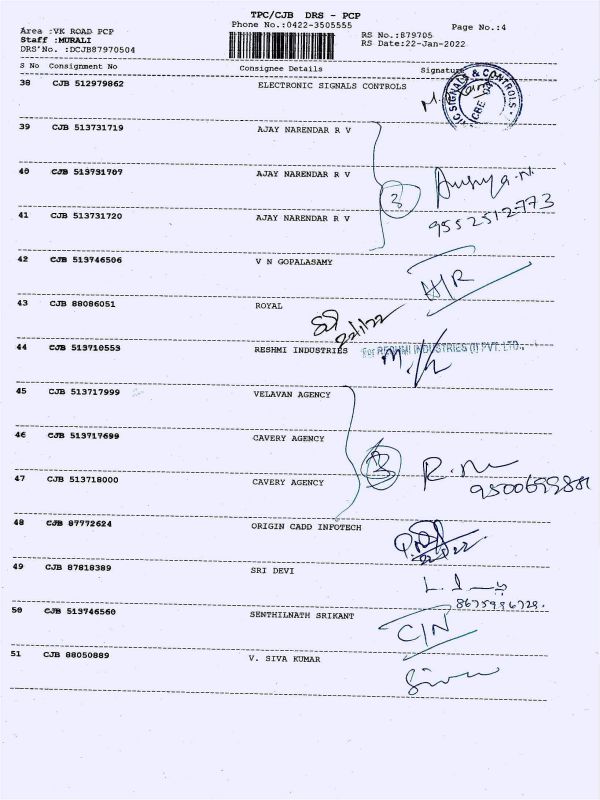 TPC/CJB DRS - PCP
Phone No.:0422-3505555
Page No.:4
Area :VK ROAD PCP
Staff :MURALI
DRS'No. :DCJB87970504
RS No.:879705
RS Date:22-Jan-2022
S No Consignment No Consignee Details Signature
38 CJB 512979862 ELECTRONIC SIGNALS CONTROLS
IC SIGNALS & CONTROLS
CBE
39 CJB 513731719 AJAY NARENDAR R V
40 CJB 513731707 AJAY NARENDAR R V
3
9552512773
41 CJB 513731720 AJAY NARENDAR R V
42 CJB 513746506 V N GOPALASAMY
43 CJB 88086051 ROYAL
22/1/22
44 CJB 513710553 RESHMI INDUSTRIES
For RESHMI INDUSTRIES (I) PVT. LTD.,
45 CJB 513717999 VELAVAN AGENCY
46 CJB 513717699 CAVERY AGENCY
3
47 CJB 513718000 CAVERY AGENCY
48 CJB 87772624 ORIGIN CADD INFOTECH
49 CJB 87818389 SRI DEVI
50 CJB 513746560 SENTHILNATH SRIKANT
C/N
51 CJB 88050889 V. SIVA KUMAR
Siva